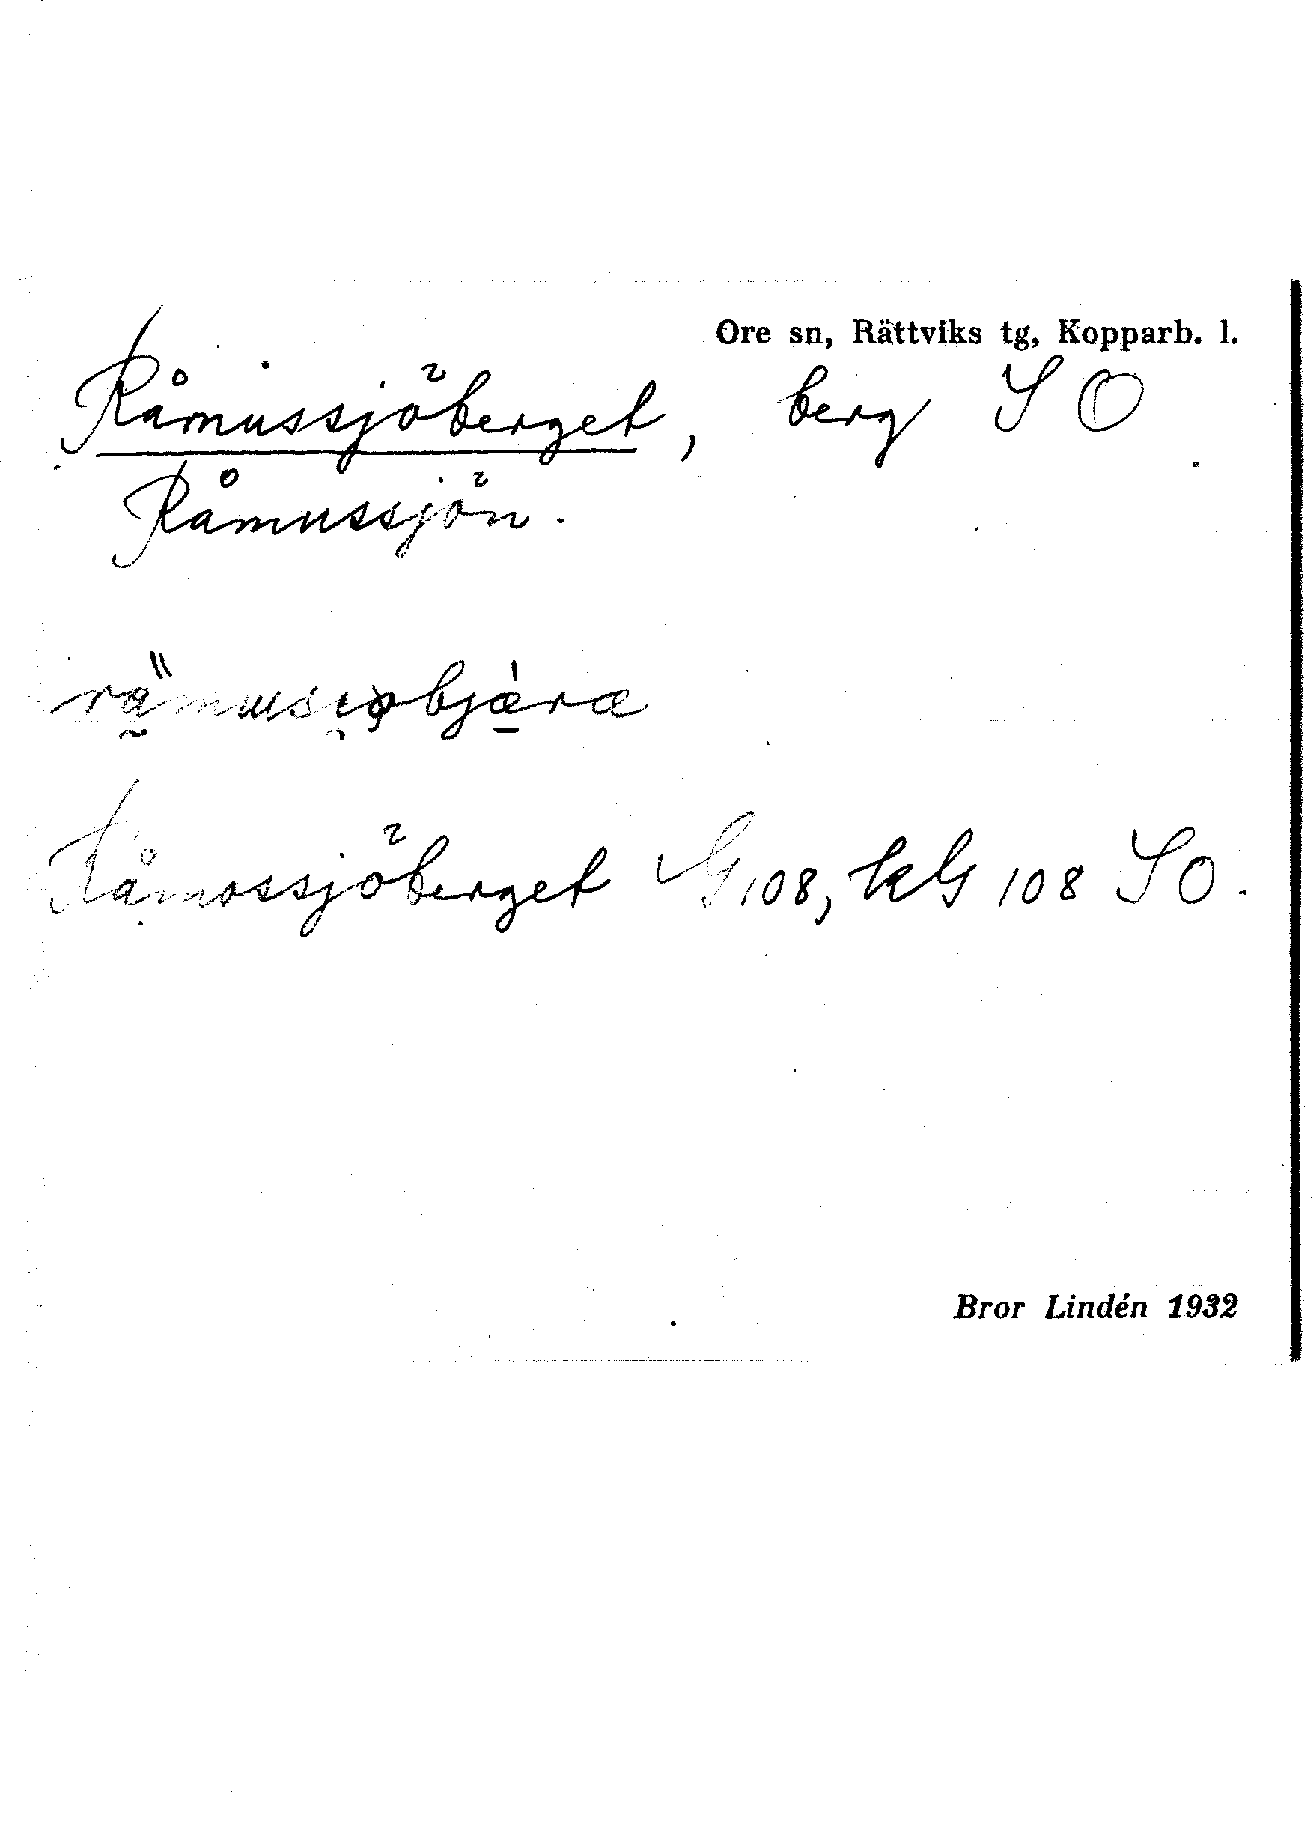 Ore sn, Rättviks tg, Kopparb. l.
Råmussjöberget, berg SO
Råmussjön.
Råmossjöberget G 108, kG 108 SO.
Bror Lindén 1932